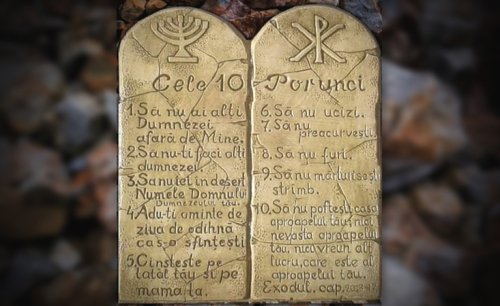 Cele 10 Porunci
1. Să nu ai alți
Dumnezei
afară de Mine.
2. Să nu-ți faci alți
dumnezei
3. Să nu iei în deșert
Numele Domnului
Dumnezeului tău.
4. Adu-ți aminte de
ziua de odihnă
ca s-o sfințești
5. Cinstește pe
tatăl tău și pe
mama ta.
6. Să nu ucizi.
7. Să nu
preacurvești.
8. Să nu furi.
9. Să nu mărturisești
strîmb.
10. Să nu poftești casa
aproapelui tău, nici
nevasta aproapelui
tău, nici vreun alt
lucru, care este al
aproapelui tău.
Exodul. cap.